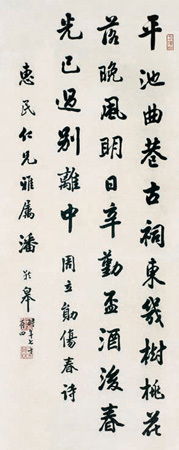 平池曲巷古祠東幾樹桃花
落晚風明日辛勤盃酒後春
光已過別離中 周立勛傷春詩
惠民仁兄雅屬 潘龄皋
時年七十四